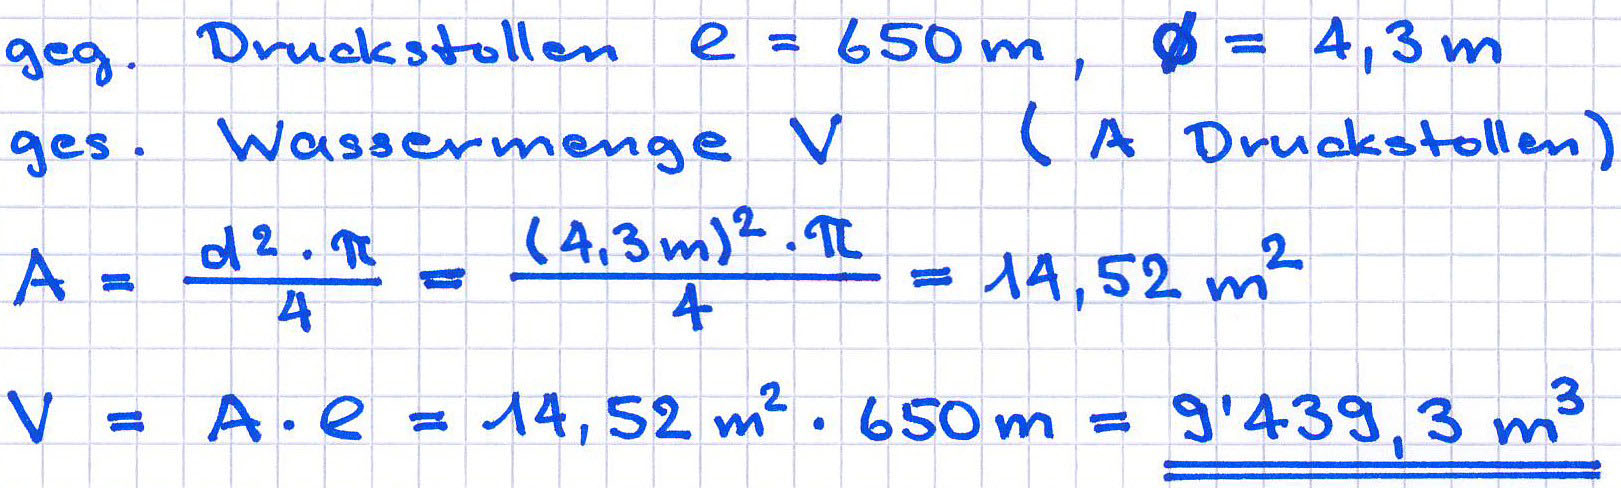 geg. Druckstollen l = 650 m, ø = 4,3 m
ges. Wassermenge V (A Druckstollen)
A = d² · π / 4 = (4,3 m)² · π / 4 = 14,52 m²
V = A · l = 14,52 m² · 650 m = 9'439,3 m³